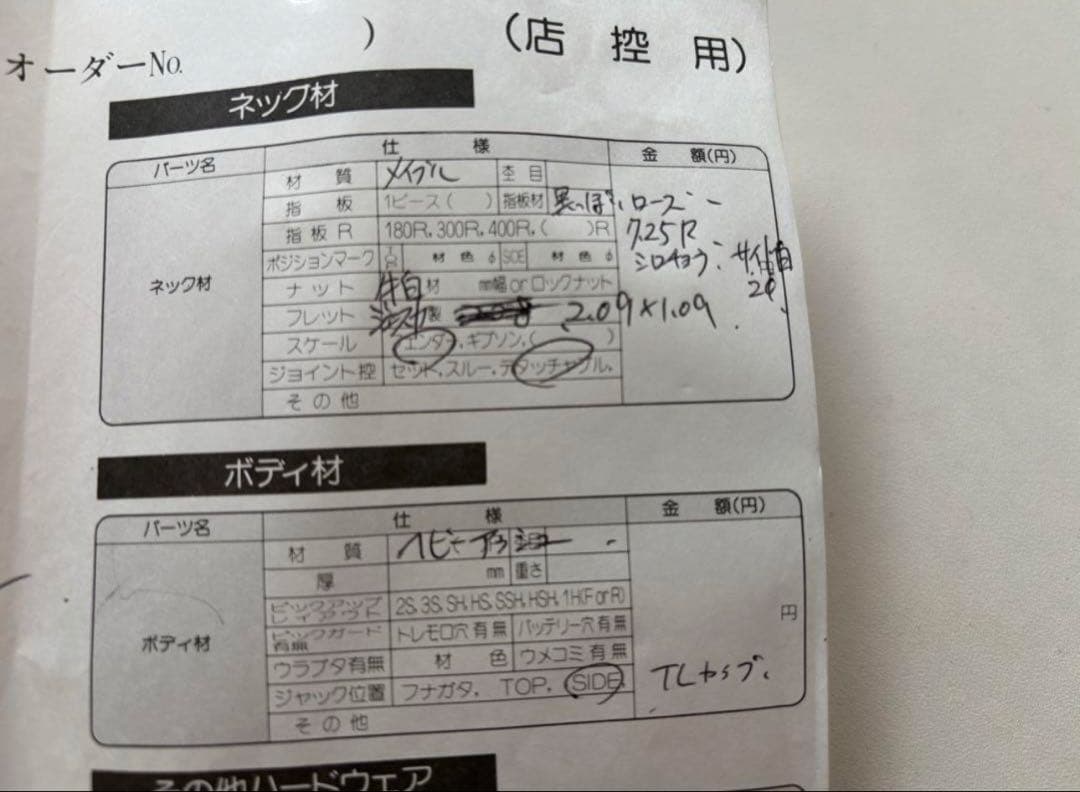 オーダーNo.
) (店 控 用)
ネック材
パーツ名 仕 様 金 額(円)
ネック材
材 質 メイプル 杢 目
指 板 1ピース( ) 指板材 黒っぽい ローズ
指板R 180R, 300R, 400R, ( )R 7.25R
ポジションマーク 材 色 φ SIDE 材 色 φ シロチョウ サイド白 2φ
ナット 牛白 材 mm幅 or ロックナット
フレット 製 2.09×1.09
スケール フェンダー, ギブソン, ( )
ジョイント控 セット, スルー, デタッチャブル,
そ の 他
ボディ材
パーツ名 仕 様 金 額(円)
ボディ材 円
材 質 ヘビーアッシュ
厚 mm 重さ
ピックアップレイアウト 2S, 3S, SH, HS, SSH, HSH, 1H(F or R)
ピックガード有無 トレモロ穴 有 無 バッテリー穴 有 無
ウラブタ有無 材 色 ウメコミ 有 無
ジャック位置 フナガタ, TOP, SIDE, TLカップ
そ の 他
その他ハードウェア